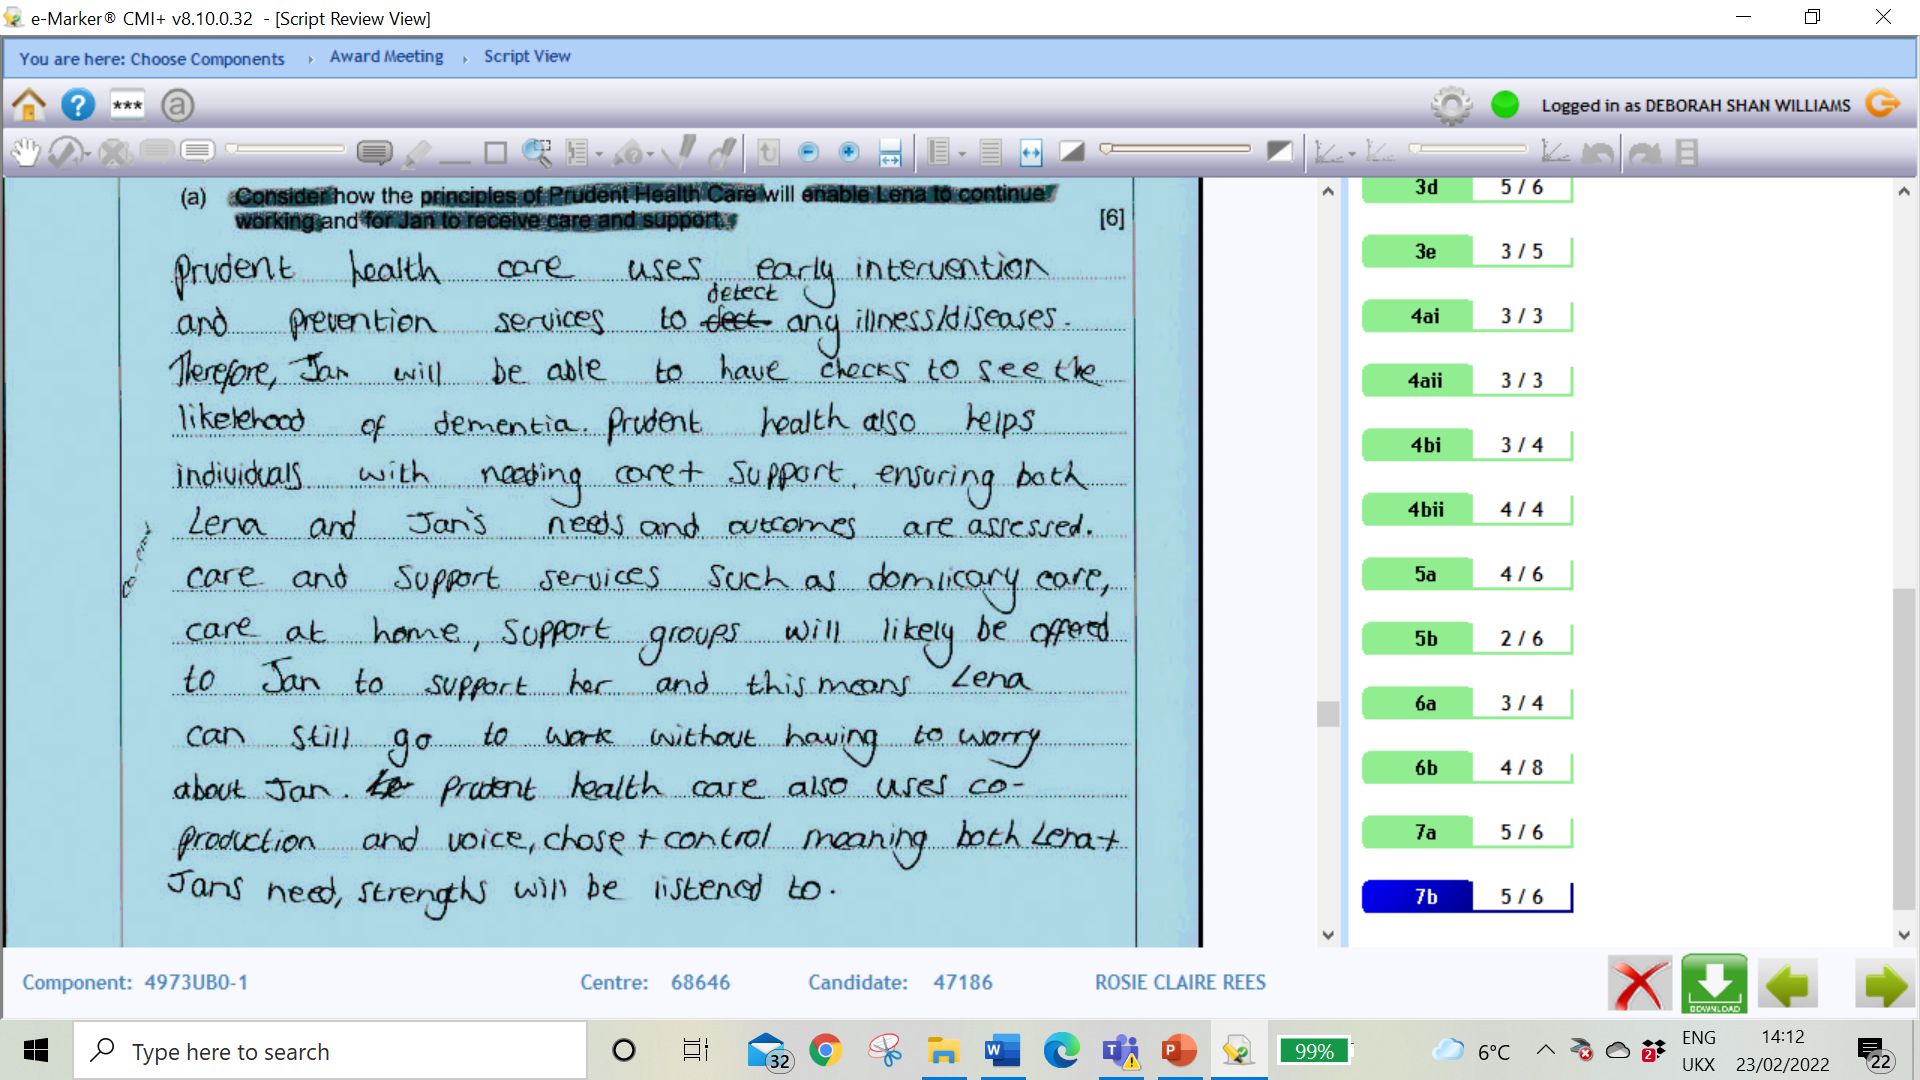 e-Marker® CMI+ v8.10.0.32 - [Script Review View]
You are here: Choose Components › Award Meeting › Script View
*** a Logged in as DEBORAH SHAN WILLIAMS
(a) Consider how the principles of Prudent Health Care will enable Lena to continue
working and for Jan to receive care and support. [6]
Prudent health care uses early intervention
detect
and prevention services to dect any illness/diseases.
Therefore, Jan will be able to have checks to see the
likelehood of dementia. Prudent health also helps
individuals with needing care + support, ensuring both
Lena and Jan's needs and outcomes are assessed.
care and support services such as domlicary care,
care at home, support groups will likely be offered
to Jan to support her and this means Lena
can still go to work without having to worry
about Jan. Prudent health care also uses co-
production and voice, chose + control meaning both Lena +
Jans need, strengths will be listened to.
3d 5 / 6
3e 3 / 5
4ai 3 / 3
4aii 3 / 3
4bi 3 / 4
4bii 4 / 4
5a 4 / 6
5b 2 / 6
6a 3 / 4
6b 4 / 8
7a 5 / 6
7b 5 / 6
Component: 4973UB0-1 Centre: 68646 Candidate: 47186 ROSIE CLAIRE REES
DOWNLOAD
Type here to search
32
99%
6°C
2
ENG
UKX
14:12
23/02/2022
22